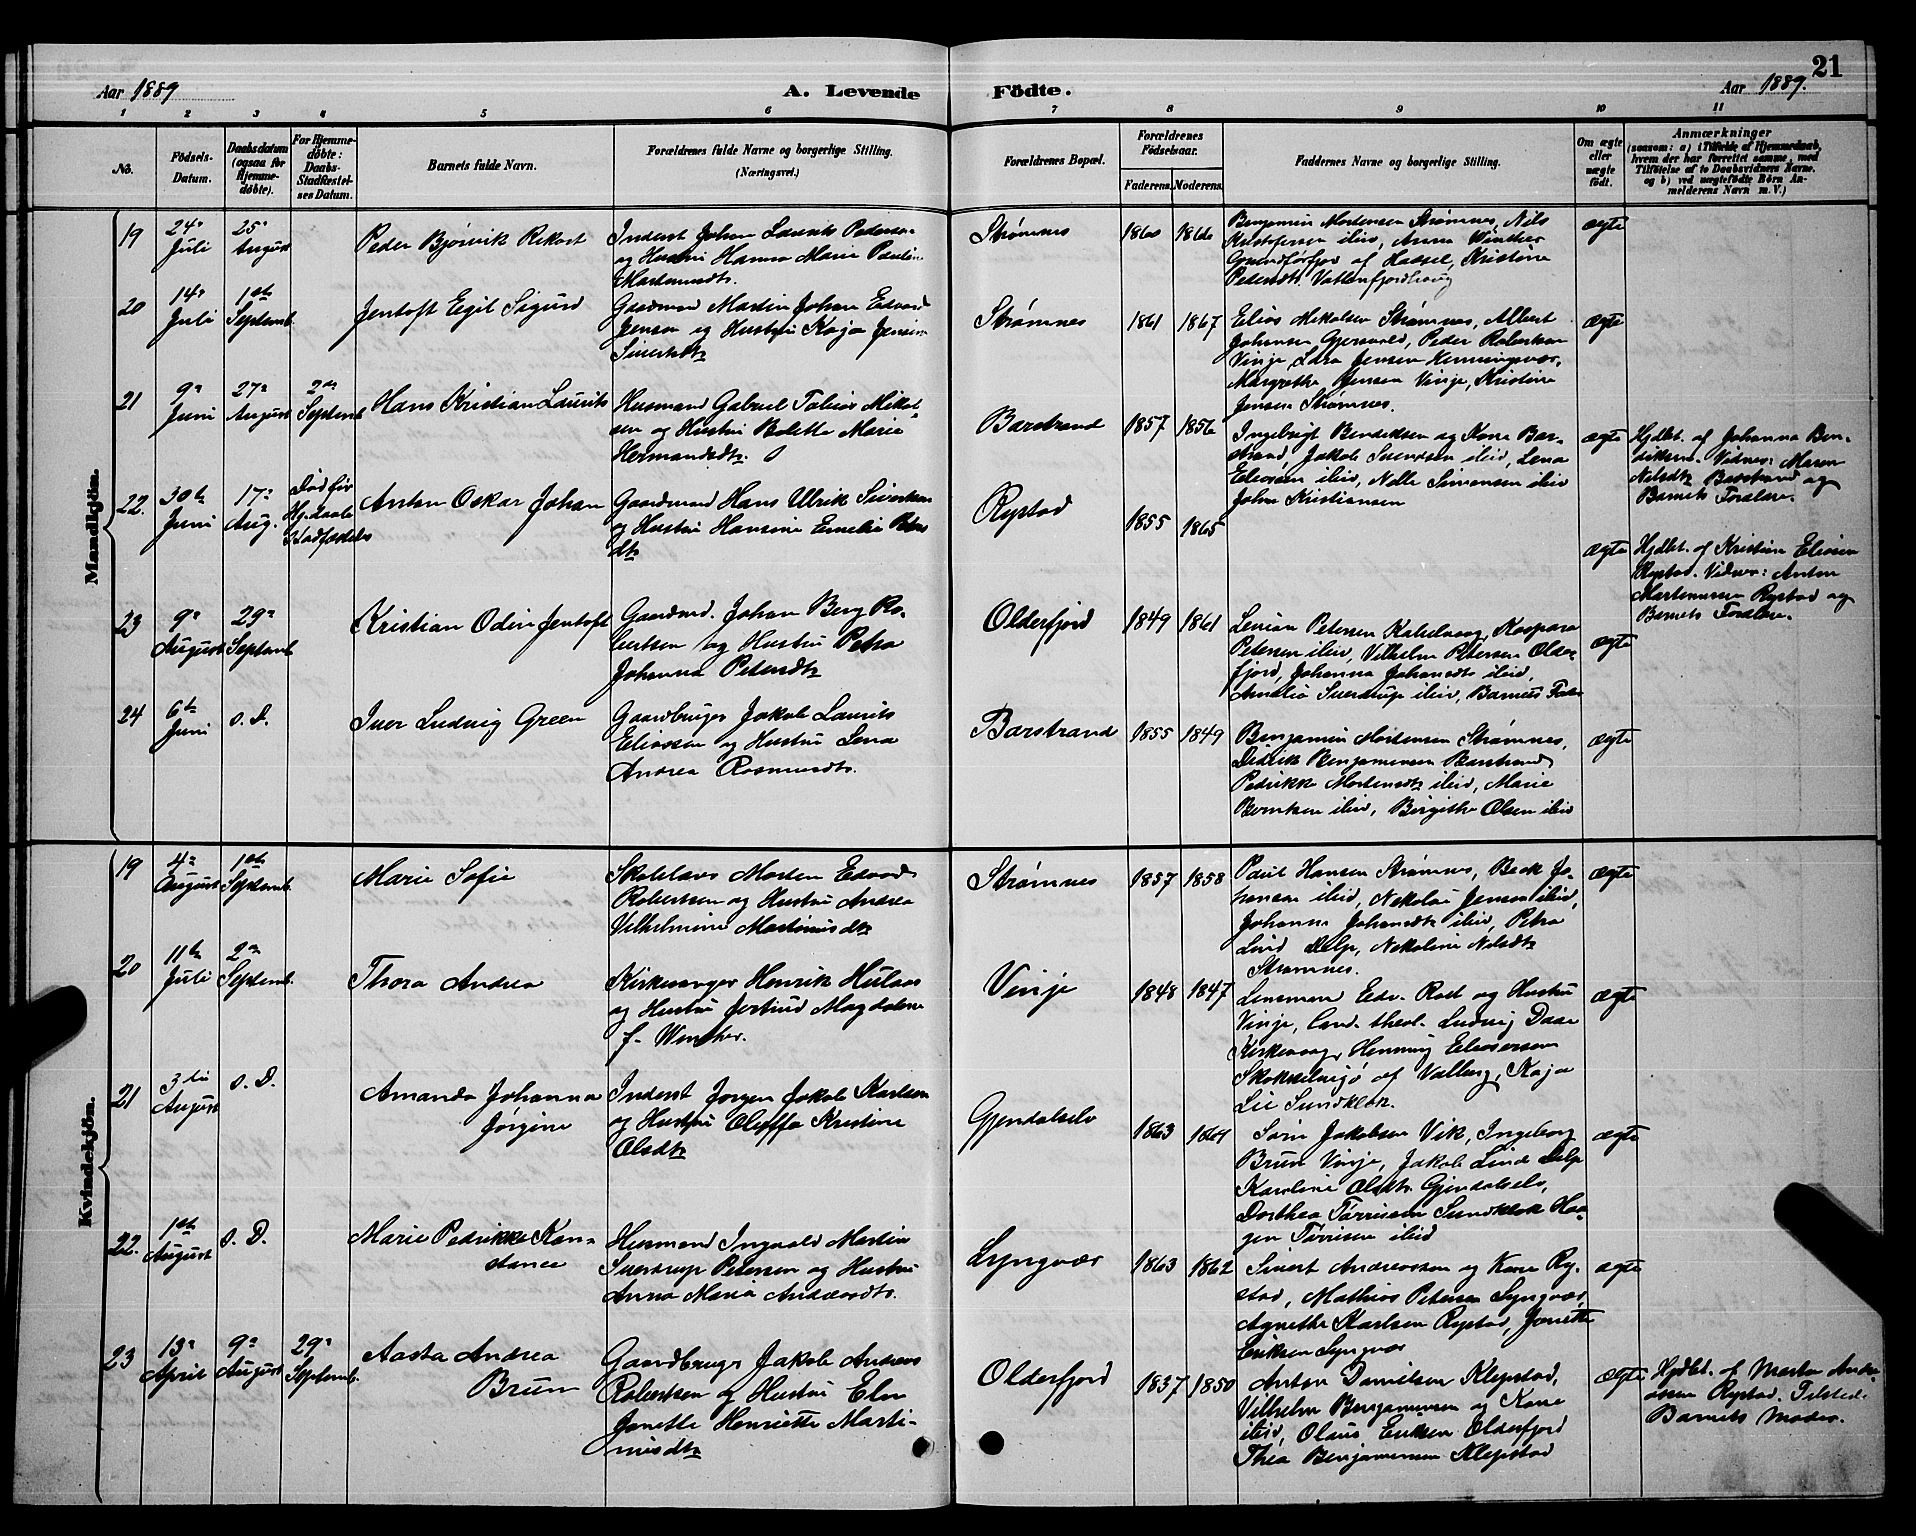 21
Aar 1889
A. Levende Födte.
Aar 1889.
1 2 3 4 5 6 7 8 9 10 11
No.
Födsels-
Datum.
Daabsdatum
(ogsaa for
Hjemme-
döbte).
For Hjemme-
döbte:
Daabs-
Stadfæstel-
ses Datum.
Barnets fulde Navn.
Forældrenes fulde Navne og borgerlige Stilling.
(Næringsvei.)
Forældrenes Bopæl.
Forældrenes
Födselsaar.
Faderens. Moderens.
Faddernes Navne og borgerlige Stilling.
Om ægte
eller
uægte
födt.
Anmærkninger
(saasom: a) i Tilfælde af Hjemmedaab,
hvem der har forrettet samme, med
Tilföielse af to Daabsvidners Navne.
og b) ved uægtefödte Börn An-
melderens Navn m. V.)
Mandkjön.
19
24de Juli
25de August
Peder Bjørvik Rekart
Inderst Johan Laurits Pedersen
og Hustru Hanna Marie Paulin
Martensdtr.
Strømnes
1860 1866
Benjamin Mortensen Strømnes, Nils
Kristofersen ibid, Anna Winther
Grundforfjor af Hassel, Kristine
Pedersdtr. Vatterfjordhaug
ægte
20
14de Juli
1ste Septemb.
Jentoft Egil Sigurd
Gaardmand Martin Johan Edvard
Jensen og Hustru Kaja Jensine
Sivertsdtr
Strømnes
1861 1867
Elias Mikalsen Strømnes, Albert
Johansen Gjersvold, Peder Robertsen
Vinje, Lara Jensen Henningsvær,
Margrethe Jensen Vinje, Kristine
Jensen Strømnes.
ægte
21
9de Juni
27de August
2den Septemb
Hans Kristian Laurits
Husmand Gabriel Tobias Mikal-
sen og Hustru Boletta Marie
Hermandsdtr.
Barstrand
1857 1856
Ingebrigt Bendiksen og Kone Bar-
strand, Jakob Svendsen ibid, Lena
Eliassen ibid, Nelle Simonsen ibid
John Kristiansen
ægte
Hjdbt. af Johanna Ben-
diksen. Vidner: Maren
Nilsdtr Barstrand og
Barnets Forældre.
22.
30te Juni
17de Aug.
Død før
Hj.daabs
Stadfæstelse
Anton Oskar Johan
Gaardmand Hans Ulrik Sivertsen
og Hustru Hansine Emelie Peters
dtr
Rystad
1855 1865
ægte
Hjdbt. af Kristian Eliasen
Rystad. Vidner: Anton
Martinussen Rystad og
Barnets Forældre.
23
9de August
29de Septemb
Kristian Odin Jentoft
Gaardmd. Johan Berg Ro-
bertsen og Hustru Petra
Johanna Petersdtr
Olderfjord
1849 1861
Petersen Kabelvaag, Kaspara
Petersen ibid, Vilhelm Petersen Older-
fjord, Johanna Johansdtr ibid,
Amalia Sverdrup ibid, Barnets Fader
ægte
24
6te Juni
s. D.
Iver Ludvig Green
Gaardbruger Jakob Laurits
Eliassen og Hustru Lena
Andrea Rasmusdtr.
Barstrand
1855 1849
Benjamin Mortensen Strømnes,
Didrik Benjaminsen Barstrand
Pedrikke Mortensdtr ibid, Marie
Berntsen ibid, Birgithe Olsen ibid
ægte
Kvindekjön.
19
4de August
1ste Septemb.
Marie Sofie
Skolelærer Morten Edvard
Robertsen og Hustru Andrea
Vilhelmine Martinusdtr
Strømnes
1857 1858
Paul Hansen Strømnes, Beck Jo-
hansen ibid, Nekolai Jensen ibid,
Johanna Johansdtr ibid, Petra
Lind Delp, Nekoline Nilsdtr
Strømnes.
ægte
20
11te Juli
2den Septemb.
Thora Andrea
Kirkesanger Henrik Hulaas
og Hustru Jertrud Magdalene
f. Winther.
Vinje
1848 1847
Lensmand Edv. Rost og Hustru
Vinje, Cand. theol. Ludvig Daae
Kirkevaag, Henning Eliesersen
af Valberg, Kaja
Lie Sundklak.
ægte
21
3die August
s. D.
Amanda Johanna
Jørgine
Inderst Jørgen Jakob Karlsen
og Hustru Oluffa Kristine
Olsdtr
Gjendalselv
1863 1864
Sørn Jakobsen Vik, Ingeborg
Brun Vinje, Jakob Lind Delp
Karoline Olsdtr. Gjendalselv,
Dorthea Tørrissen Sundklak Haa-
gen Tørrisen ibid
ægte
22.
1ste August
s. D.
Marie Pedrikke Kon-
stance
Husmand Ingvald Martin
Sverdrup Petersen og Hustru
Anna Maria Andreasdtr.
Lyngvær
1863 1862
Sivert Andreassen og Kone Ry-
stad, Mathias Petersen Lyngvær,
Agnethe Karlsen Rystad, Jonette
Eriksen Lyngvær
ægte
23
13de April
9de August
29de Septemb.
Aasta Andrea
Brun
Gaardbruger Jakob Andreas
Robertsen og Hustru Elen
Janette Henriette Marti-
nusdtr
Olderfjord
1837 1850
Anton Danielsen Klepstad,
Vilhelm Benjaminsen og Kone
ibid, Olaus Eriksen Olderfjord
Thea Benjaminsen Klepstad
ægte
Hjdbt. af Martin Andre-
assen Rystad. Tilstede
Barnets Moder.